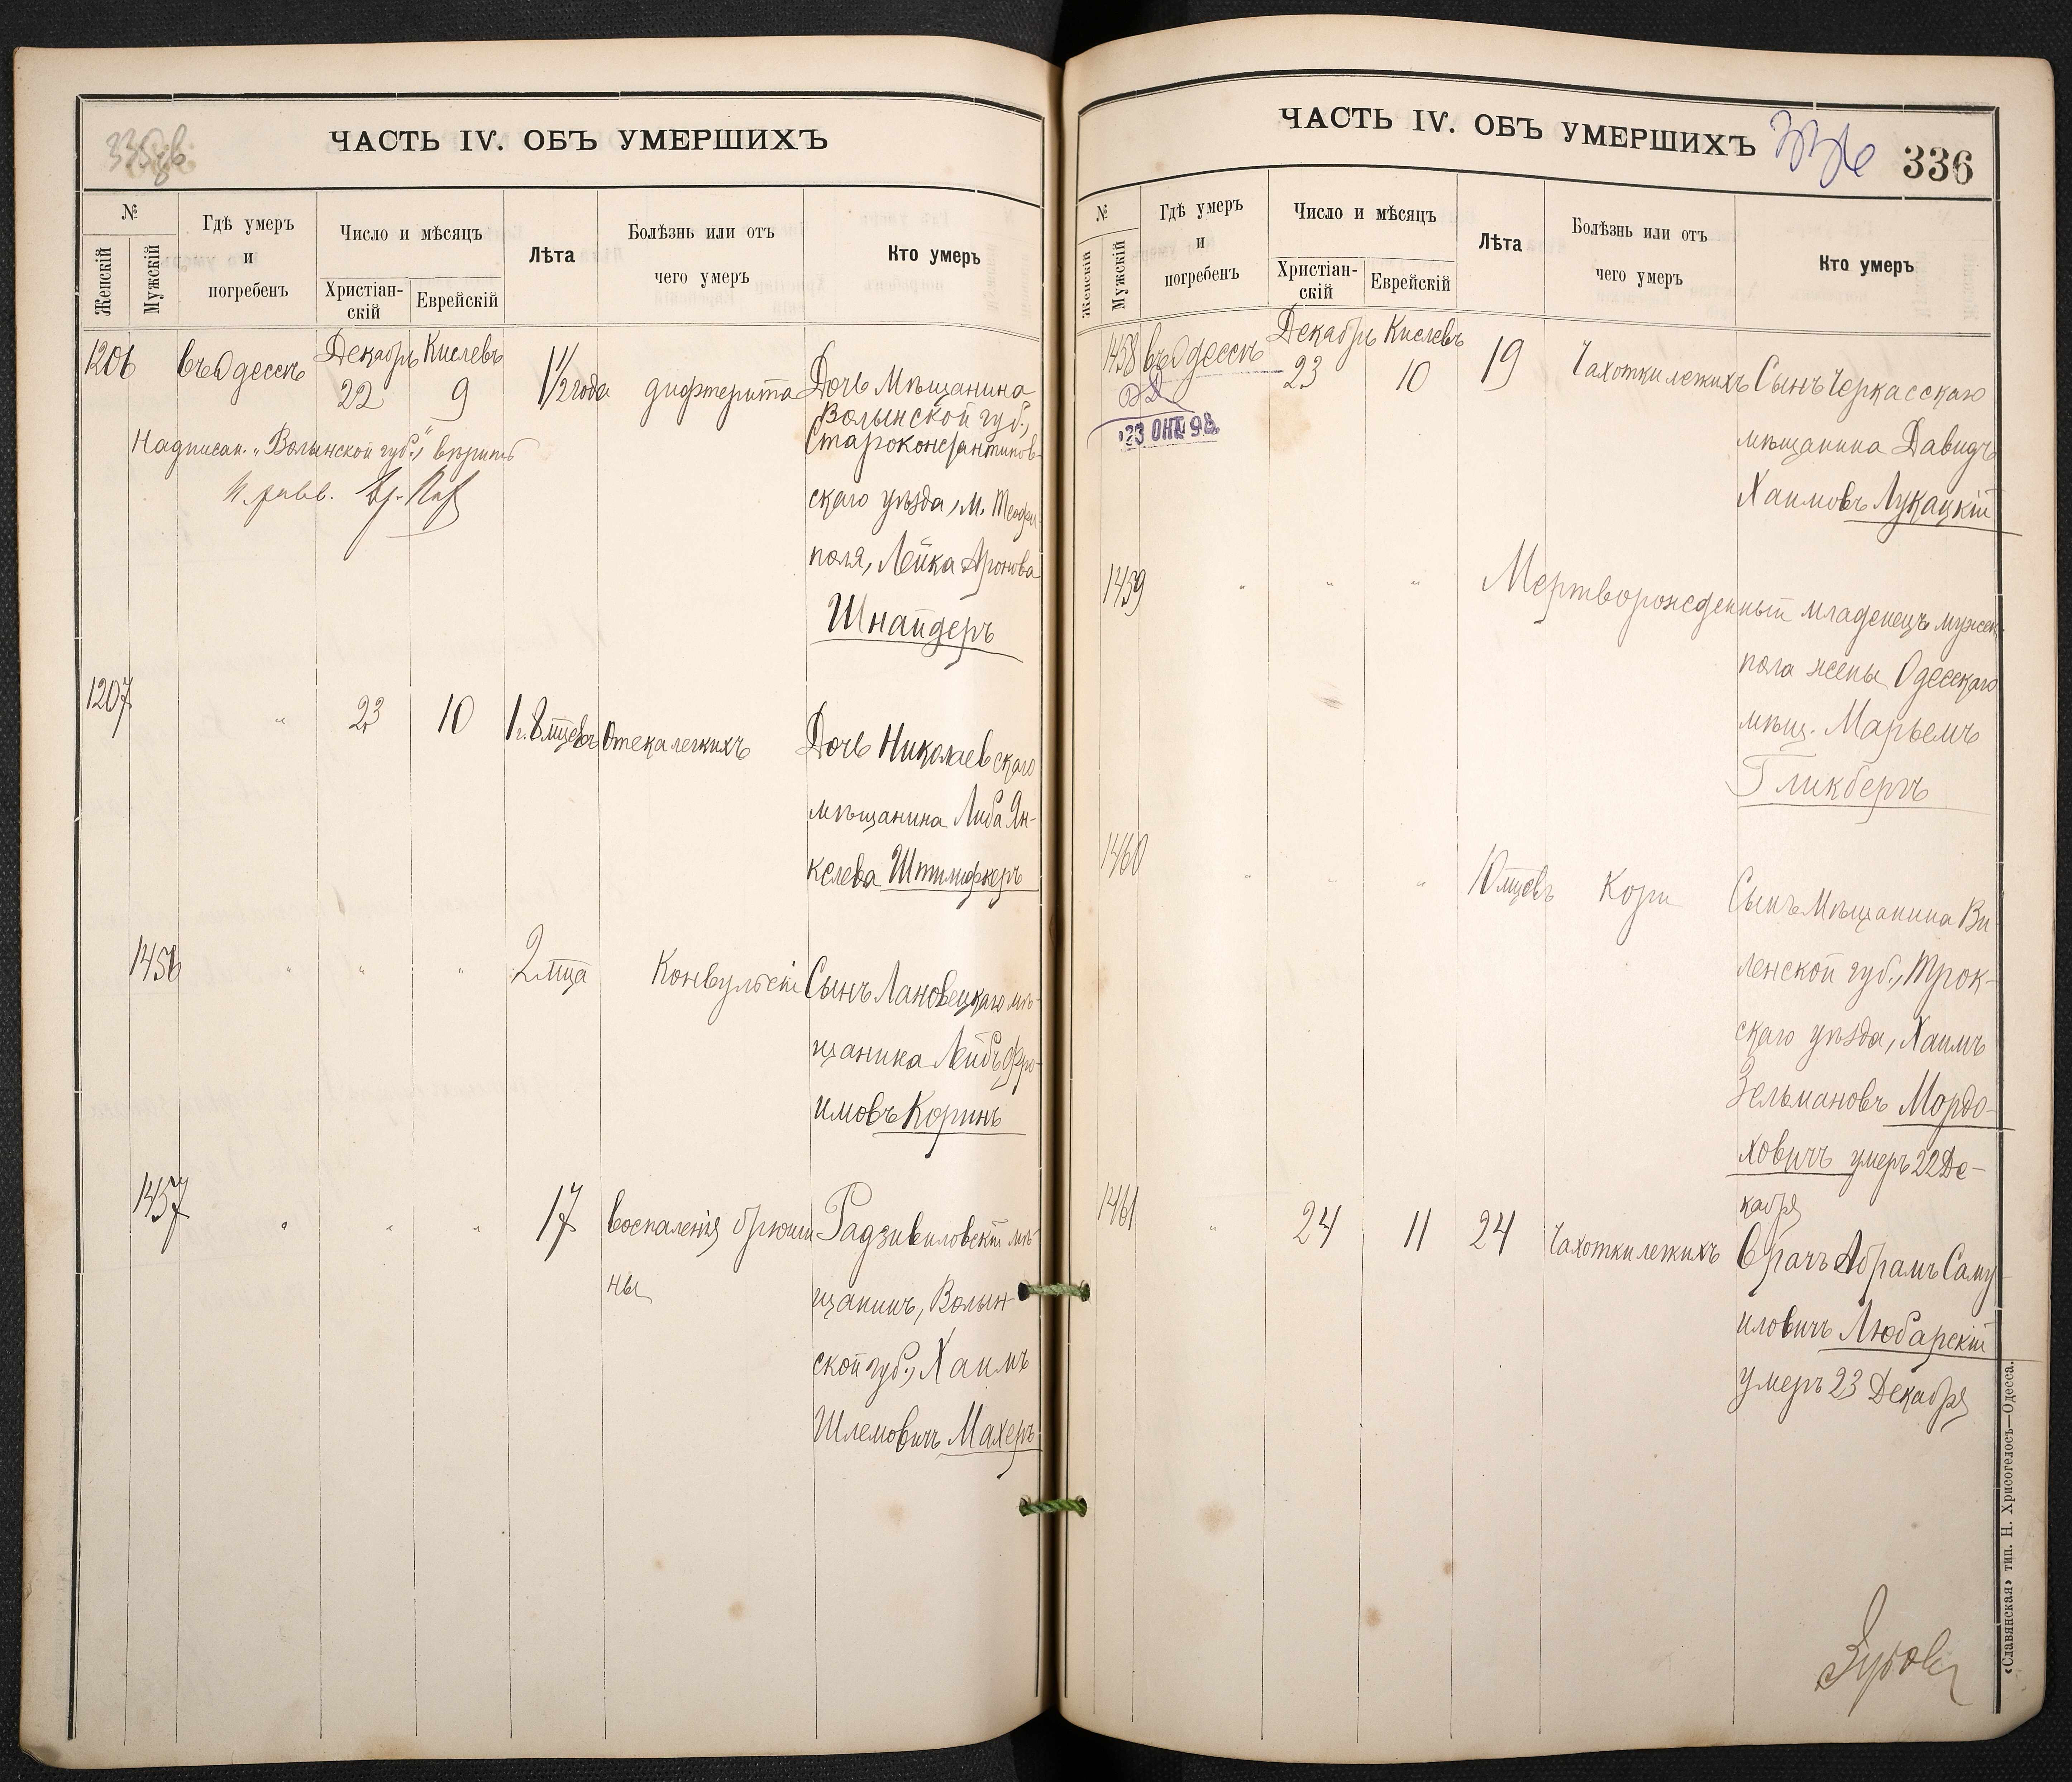 ЧАСТЬ IV. ОБЪ УМЕРШИХЪ
№
Женскій
Мужскій
Гдѣ умеръ
и
погребенъ
Число и мѣсяцъ
Христіан-
скій
Еврейскій
Лѣта
Болѣзнь или отъ
чего умеръ
Кто умеръ
1206 въ Одессѣ Декабрь 22 Кислевъ 9 1 1/2 года дифтерита Дочь Мѣщанина
Волынской губ.,
Староконстантинов-
скаго уѣзда, м. Теофи-
поля, Лейка Аронова
Шнайдеръ
Надписан. „Волынской губ.,“ вѣрить
1207 „ 23 10 1 г. 8 мцевъ Отека легкихъ Дочь Николаевскаго
мѣщанина Либа Ян-
келева Штимфкеръ
1456 „ „ „ 2 мца Конвульсіи Сынъ Лановецкаго мѣ-
щанина Лейбъ Фро-
имовъ Коринъ
1457 „ „ „ 17 воспаленія брюши Радзивиловскій мѣ-
ны
щанинъ, Волын-
ской губ., Хаимъ
Шлемовичъ Махеръ
ЧАСТЬ IV. ОБЪ УМЕРШИХЪ 336 336
№
Женскій
Мужскій
Гдѣ умеръ
и
погребенъ
Число и мѣсяцъ
Христіан-
скій
Еврейскій
Лѣта
Болѣзнь или отъ
чего умеръ
Кто умеръ
1458 въ Одессѣ Декабрь 23 Кислевъ 10 19 Чахотки легкихъ Сынъ Черкасскаго
мѣщанина Давидъ
Хаимовъ Лукацкій
23 ОКТ 98
1459 „ „ „ Мертворожденный младенецъ мужск.
пола жены Одесскаго
мѣщ. Марьемъ
Гликбергъ
1460 „ „ „ 10 мцовъ Кори Сынъ Мѣщанина Ви-
ленской губ., Трок-
скаго уѣзда, Хаимъ
Зельмановъ Мордо-
ховичъ умеръ 22 Де-
кабря
1461 „ 24 11 24 Чахотки легкихъ Врачъ Абрамъ Саму-
иловичъ Любарскій
умеръ 23 Декабря
«Славянская» тип. Н. Хрисогелосъ—Одесса.